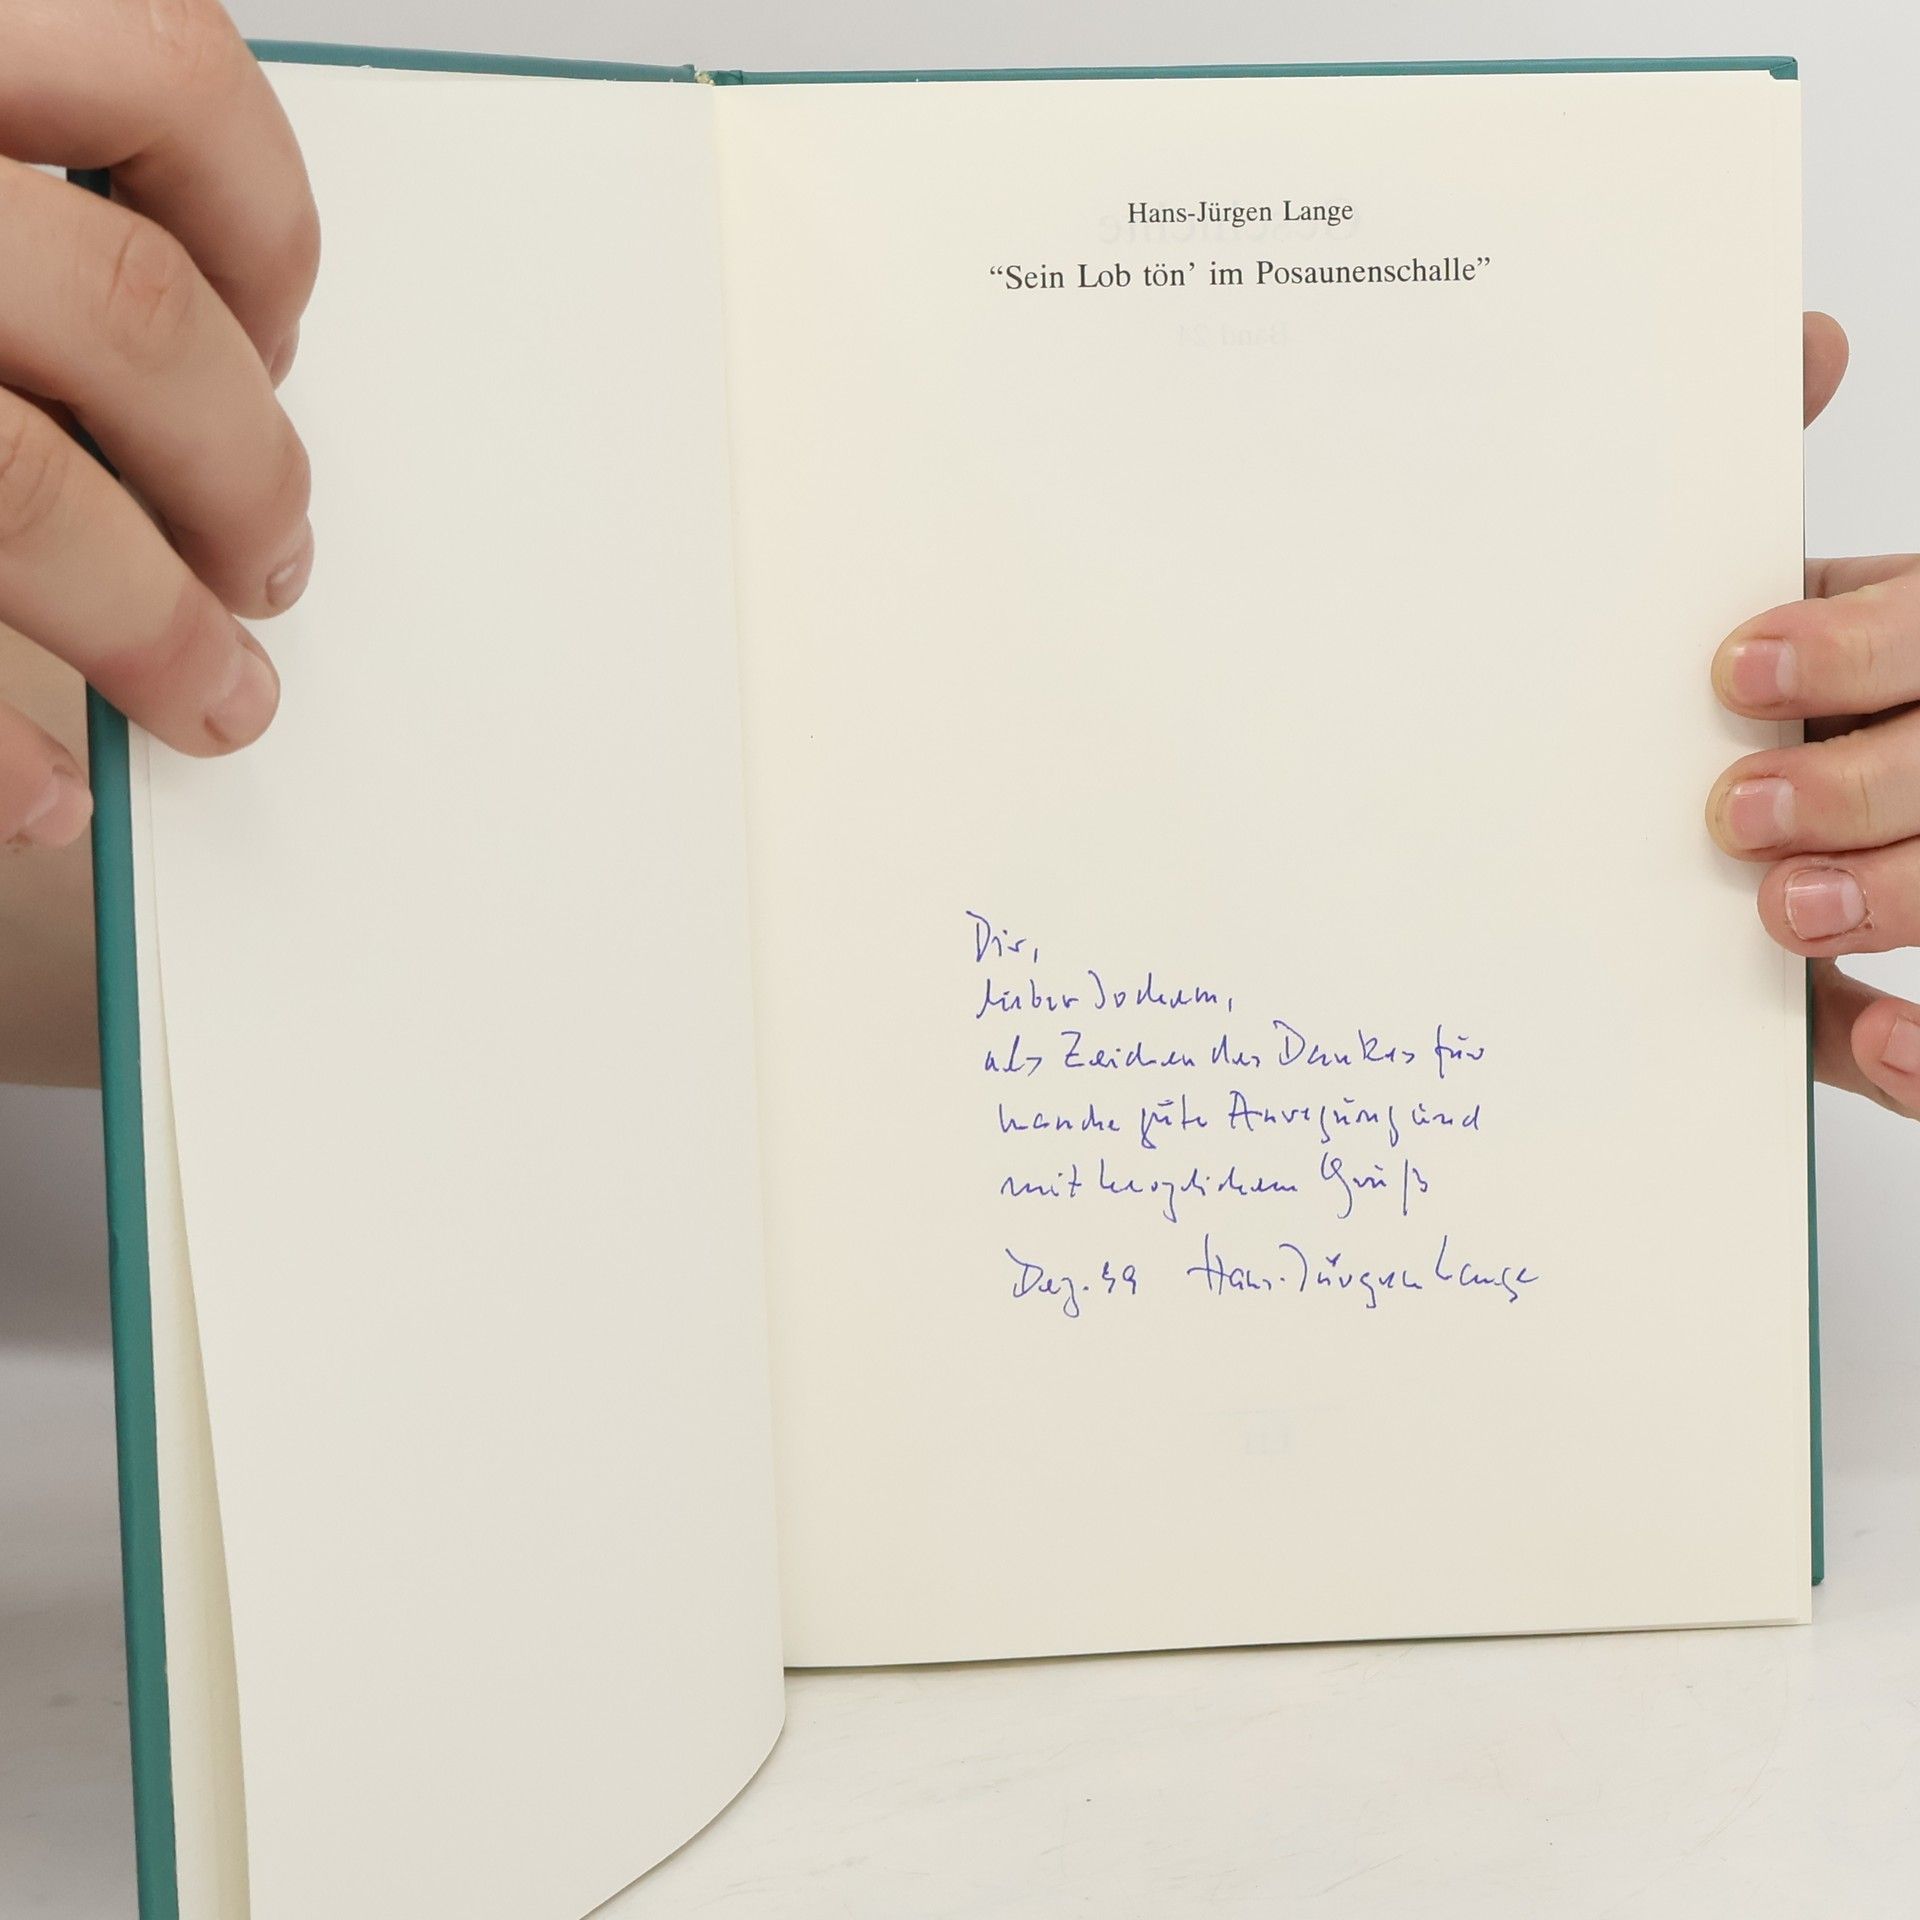 Hans-Jürgen Lange
“Sein Lob tön’ im Posaunenschalle”
Geschichte
Band 24
Dir,
lieber Jochem,
als Zeichen des Dankes für
manche gute Anregung und
mit herzlichem Gruß
Dez. 99 Hans-Jürgen Lange